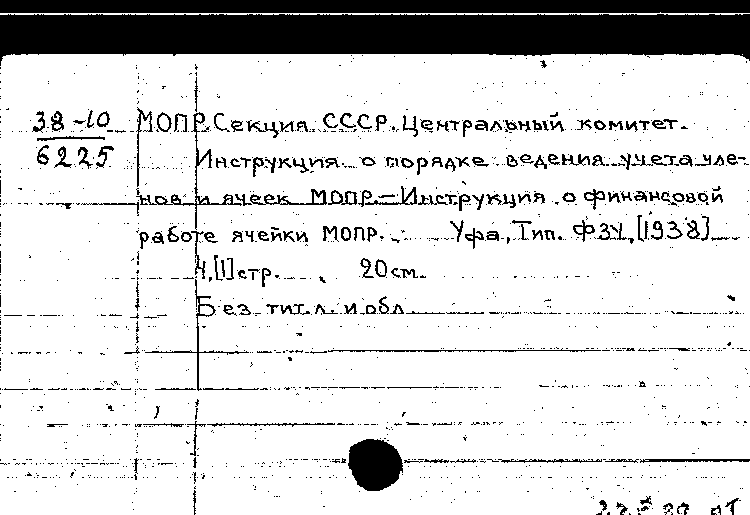 38-10
6225
МОПР. Секция СССР. Центральный комитет.
Инструкция о порядке ведения учета чле-
нов и ячеек МОПР.—Инструкция о финансовой
работе ячейки МОПР. Уфа, Тип. ФЗУ, [1938]
4,[1] стр. 20см.
Без тит.л. и обл.